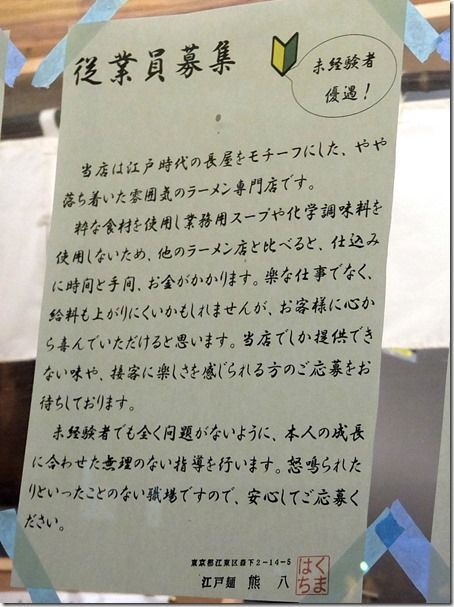 従業員募集
未経験者
優遇！
当店は江戸時代の長屋をモチーフにした、やや
落ち着いた雰囲気のラーメン専門店です。
粋な食材を使用し業務用スープや化学調味料を
使用しないため、他のラーメン店と比べると、仕込み
に時間と手間、お金がかかります。楽な仕事でなく、
給料も上がりにくいかもしれませんが、お客様に心か
ら喜んでいただけると思います。当店でしか提供でき
ない味や、接客に楽しさを感じられる方のご応募をお
待ちしております。
未経験者でも全く問題がないように、本人の成長
に合わせた無理のない指導を行います。怒鳴られた
りといったことのない職場ですので、安心してご応募く
ださい。
東京都江東区森下2-14-5
江戸麺 熊八
くま
はち